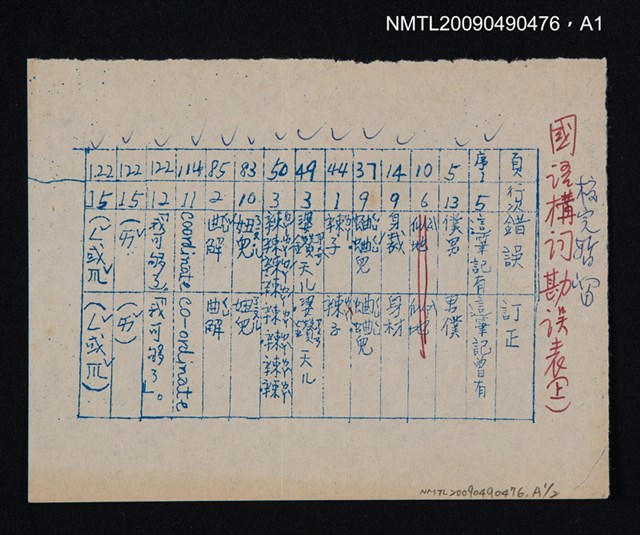 NMTL20090490476，A1
校完暫留
國語構詞勘誤表(上)
頁 行 錯誤 訂正
序1 5 這筆記有 這筆記曾有
5 13 僕男 男僕
10 6 似地 似地
14 9 身裁 身材
37 9 蛐蛐兒 蛐蛐兒
44 1 辣子 辣子
49 3 婆 天ㄦ 婆 天ㄦ
50 3 辣辣辣辣 辣辣辣辣
83 10 妞兒 妞兒
85 2 曲解 曲解
114 11 coordinate co-ordinate
122 12 「我可够了」 「我可够了」。
122 15 (ㄞ) (ㄞ)
122 15 (ㄥ或ㄫ) (ㄥ或ㄫ)
NMTL20090490476. A1/2